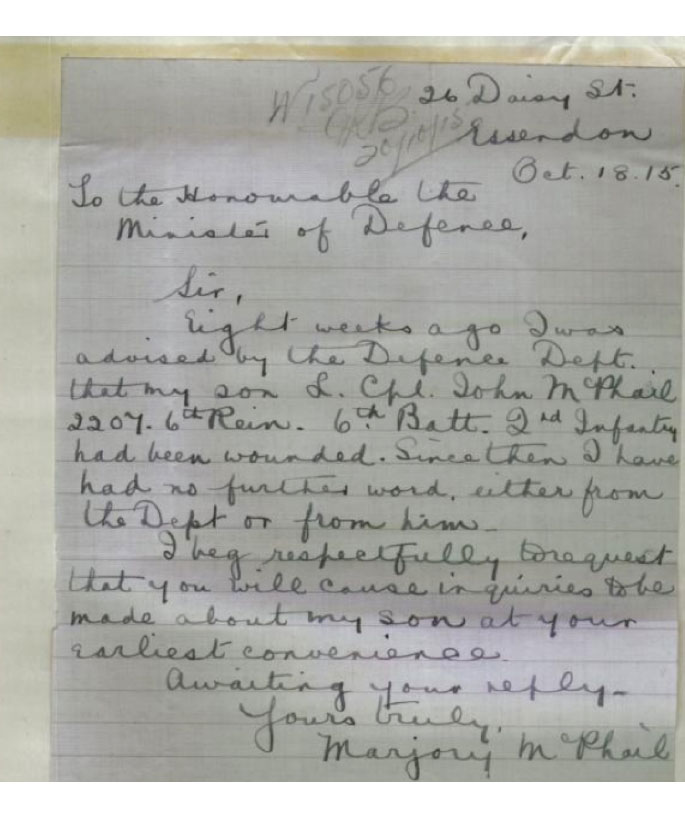 W15056
26 Daisy St.
20/10/15
Essendon
Oct. 18.15.
To the Honourable the
Minister of Defence,
Sir,
Eight weeks ago I was
advised by the Defence Dept.
that my son L. Cpl. John McPhail
2207. 6th Rein. 6th Batt. 2nd Infantry
had been wounded. Since then I have
had no further word, either from
the Dept or from him -
I beg respectfully to request
that you will cause inquiries to be
made about my son at your
earliest convenience.
Awaiting your reply -
Yours truly,
Marjory McPhail